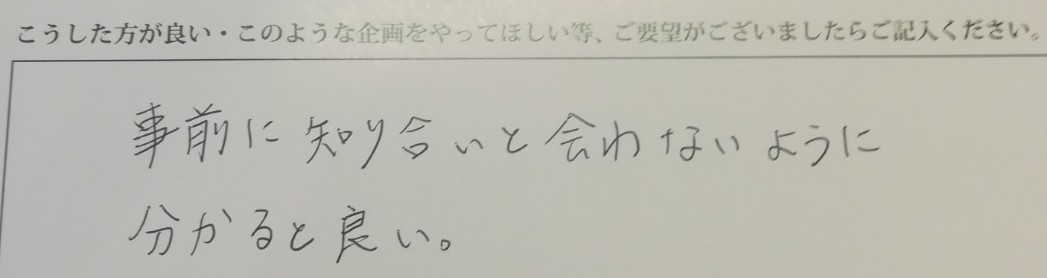 こうした方が良い・このような企画をやってほしい等、ご要望がございましたらご記入ください。
事前に知り合いと会わないように
分かると良い。